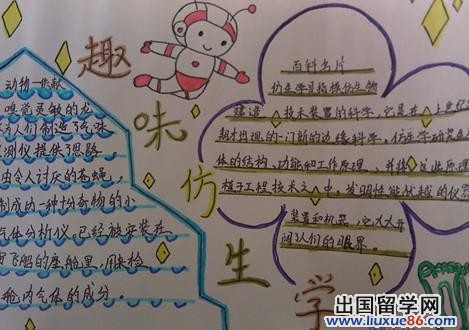 趣味仿生学
动物一贡献
嗅觉灵敏的龙
为人们制造了气味
测仪提供了思路
由令人讨厌的苍蝇,
制成功一种均奇物的小
气体分析仪,已经放安装在
宙飞船的座舱里,用来检
舱内气体的成分。
百科名片
仿生学是指模仿生物
建造技术装置的科学,它是在上世纪
期才出现的一门新的边缘科学,仿生学研究
体的结构、功能和工作原理,并将这些原理
植于工程技术之中,发明性能优越的仪
装置和机器,它大大开
阔了人们的眼界。
出国留学网
www.liuxue86.com